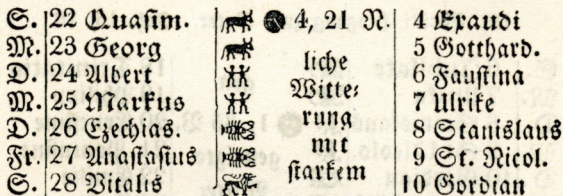 S. 22 Quasim. 4, 21 N. 4 Exaudi
M. 23 Georg 5 Gotthard.
D 24 Albert liche 6 Faustina
M. 25 Markus Witte⸗ 7 Ulrike
D. 26 Ezechias. rung 8 Stanislaus
Fr. 27 Anastasius mit 9 St. Nicol.
S. 28 Vitalis starkem 10 Gordian